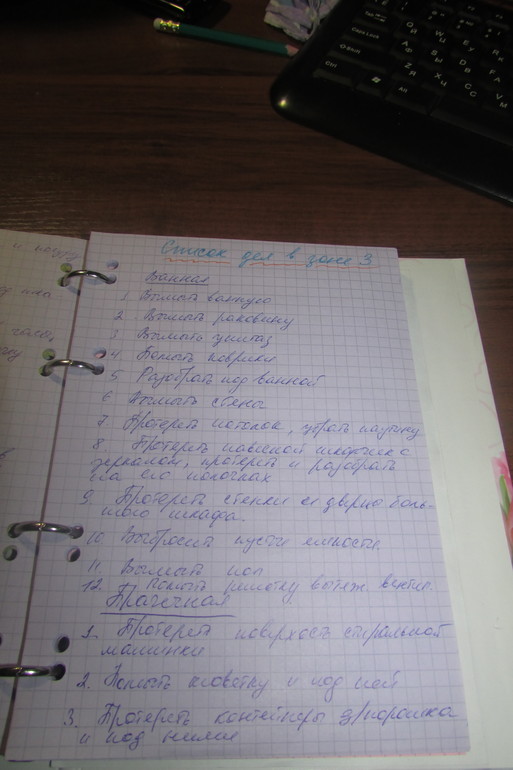 Список дел в зоне 3
Ванная
1. Вымыть ванную
2. Вымыть раковину
3. Вымыть унитаз
4. Помыть коврики
5. Разобрать под ванной
6. Вымыть стены
7. Протереть потолок, убрать паутину
8. Протереть навесной шкафчик с
зеркалом, протереть и разобрать
на его полочках
9. Протереть стенки и дверцы боль-
шого шкафа.
10. Выбросить пустые емкости.
11. Вымыть пол
12. Помыть решотку вытяж. вентил.
Прачечная
1. Протереть поверхость стиральной
машинки
2. Помыть кюветку и под ней
3. Протереть контейнеры д/порошка
и под ними
Caps Lock
Shift
Ctrl
Alt